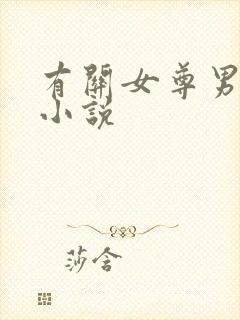 有關女尊男
小說
莎含